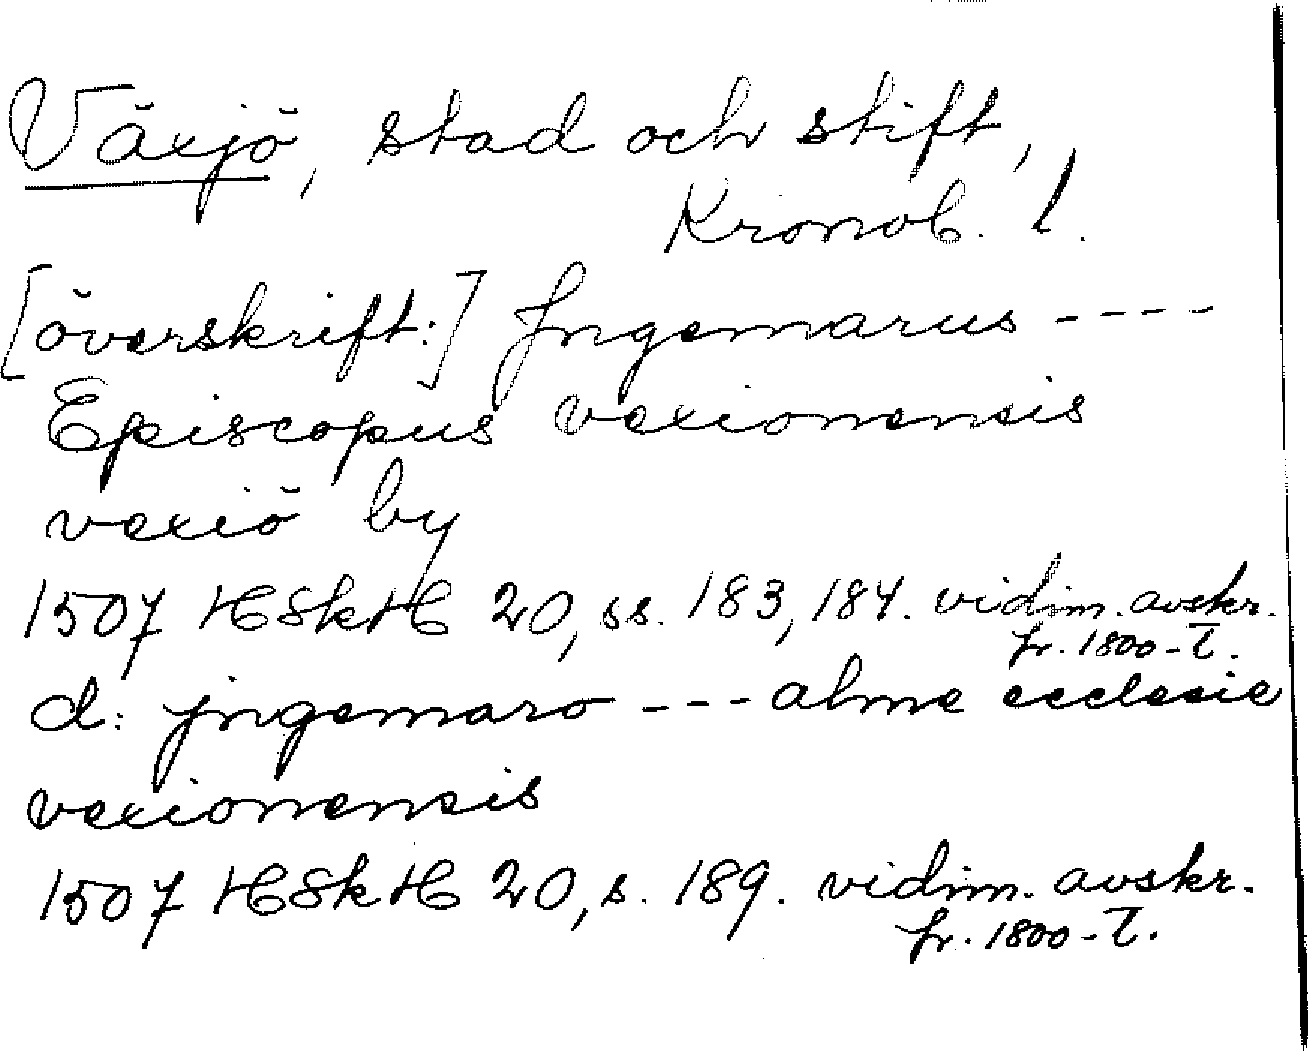 Växjö, stad och stift,
Kronob. l.
[överskrift:] Jngemarus ----
Episcopus vexionensis
vexiö by
1507 HSkH 20, ss. 183, 184. vidim. avskr.
fr. 1800-t.
d: jngemaro --- alme ecclesie
vexionensis
1507 HSkH 20, s. 189. vidim. avskr.
fr. 1800-t.